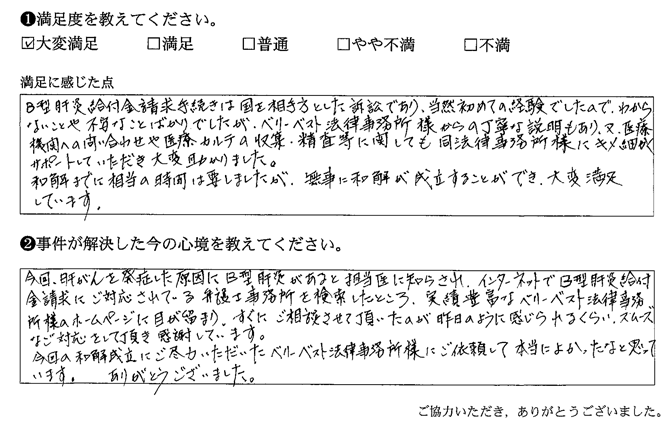 ❶満足度を教えてください。
☑大変満足 □満足 □普通 □やや不満 □不満
満足に感じた点
B型肝炎給付金請求手続きは国を相手方とした訴訟であり、当然初めての経験でしたので、わから
ないことや不安なことばかりでしたが、ベリーベスト法律事務所様からの丁寧な説明もあり、又、医療
機関への問い合わせや医療カルテの収集・精査等に関しても同法律事務所様にキメ細かく
サポートしていただき大変助かりました。
和解までに相当の時間は要しましたが、無事に和解が成立することができ、大変満足
しています。
❷事件が解決した今の心境を教えてください。
今回、肝がんを発症した原因にB型肝炎があると担当医に知らされ、インターネットでB型肝炎給付
金請求にご対応されている弁護士事務所を検索したところ、実績豊富なベリーベスト法律事務
所様のホームページに目が留まり、すぐにご相談させて頂いたのが昨日のように感じられるくらい、スムーズ
なご対応をして頂き感謝しています。
今回の和解成立にご尽力いただいたベリーベスト法律事務所様にご依頼して本当によかったなと思って
います。 ありがとうございました。
ご協力いただき、ありがとうございました。